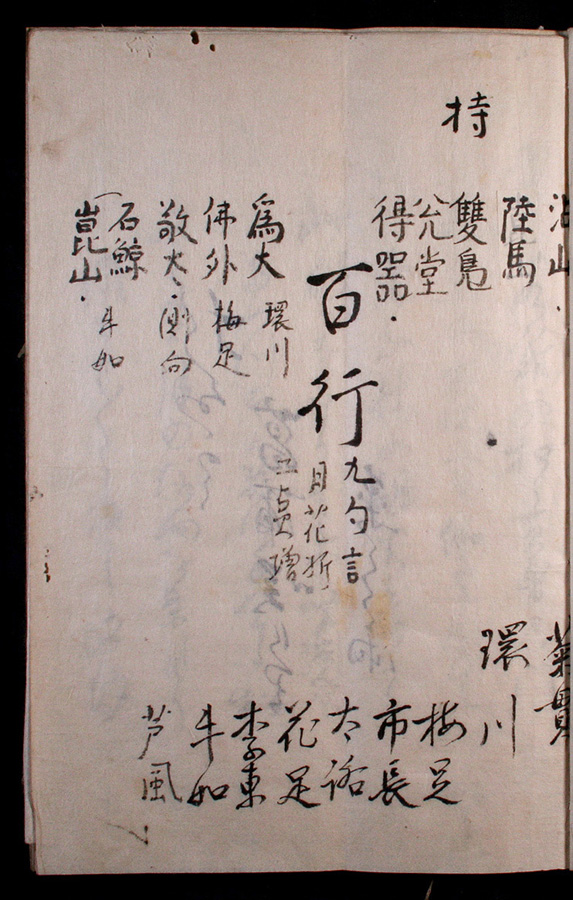 持
沾山
陸馬
雙鳧
兊堂
得器
百行
九句言
月花折
二点増
爲大 環川
佛外 梅足
敬大 側向
石鯨
崑山 牛如
菊貫
環川
梅足
市長
花足
李東
牛如
芦風